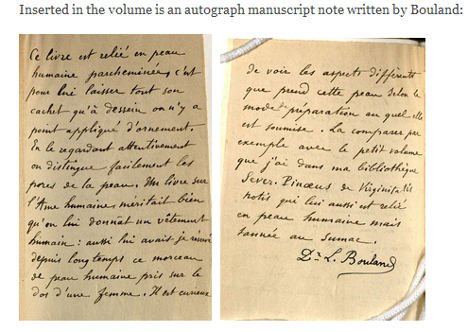 Inserted in the volume is an autograph manuscript note written by Bouland:
Ce livre est relié en peau
humaine parcheminée, c'est
pour lui laisser tout son
cachet qu'à dessein on n'y a
point appliqué d'ornement.
En le regardant attentivement
on distingue facilement les
pores de la peau. Un livre sur
l'Ame humaine méritait bien
qu'on lui donnât un vêtement
humain : aussi lui avais je réservé
depuis longtemps ce morceau
de peau humaine pris sur le
dos d'une femme. Il est curieux
de voir les aspects différents
que prend cette peau selon le
mode de préparation au quel elle
est soumise. La comparer par
exemple avec le petit volume
que j'ai dans ma bibliothèque
Sever. Pinaeus de Virginitatis
notis qui lui aussi est relié
en peau humaine mais
tannée au sumac.
Dr L. Bouland